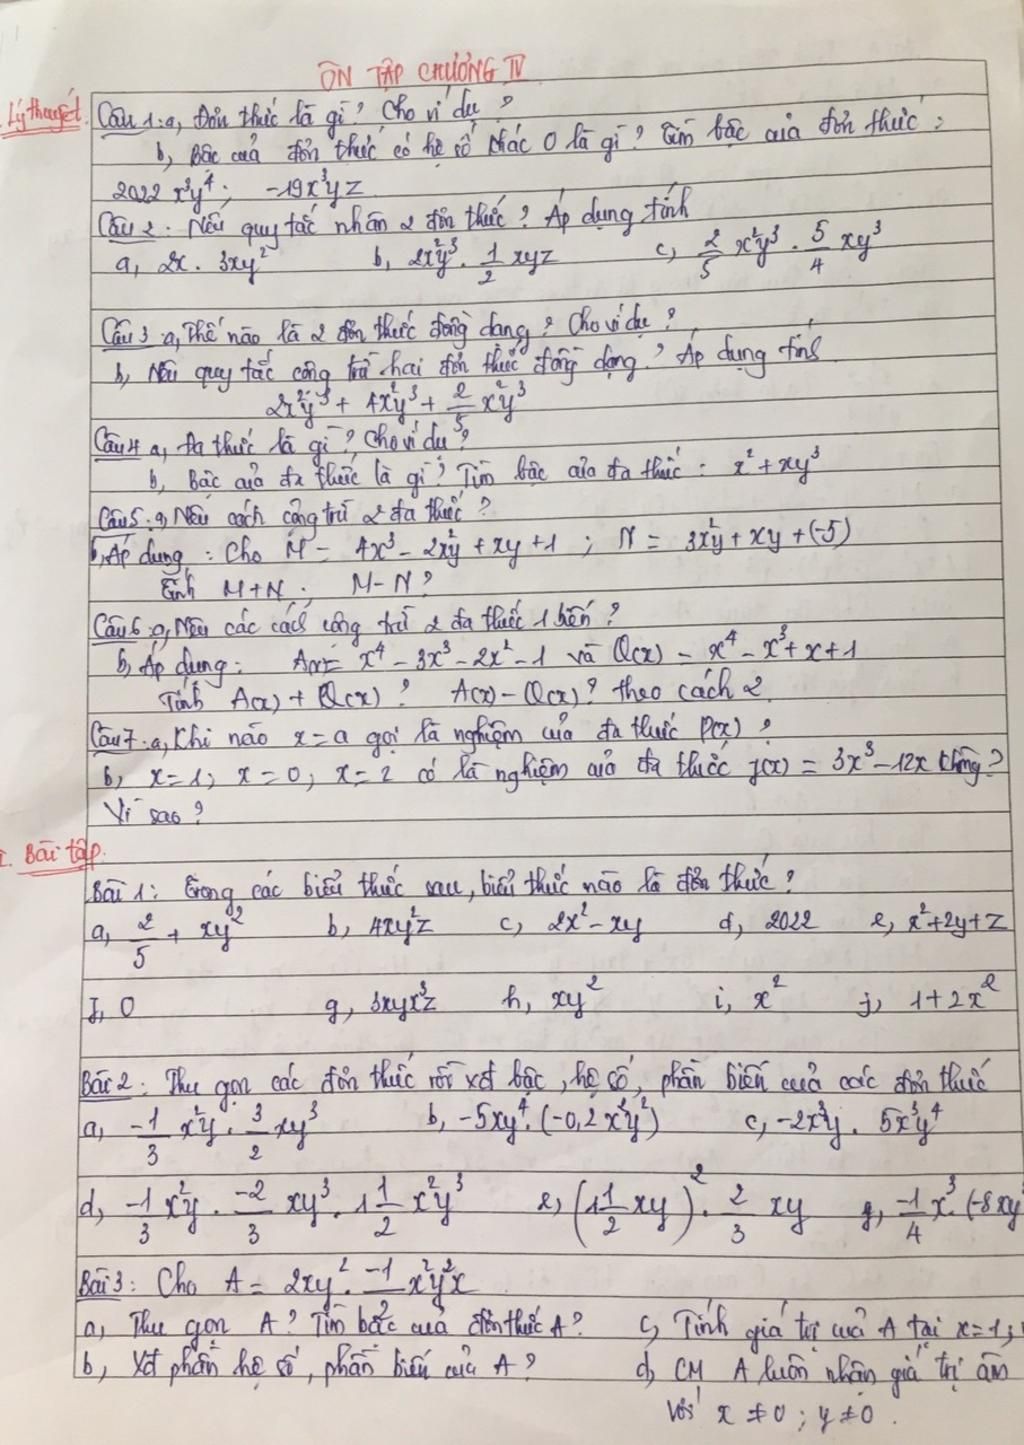 ÔN TẬP CHƯƠNG IV
Lý thuyết. Câu 1: a, Đơn thức là gì? Cho ví dụ?
b, Bậc của đơn thức có hệ số khác 0 là gì? Tìm bậc của đơn thức:
2022 x³y⁴; -19x³yz
Câu 2: Nêu quy tắc nhân 2 đơn thức? Áp dụng tính
a, 2x . 3xy² b, 2x²y³ . 1/2 xyz c, 2/5 x²y³ . 5/4 xy³
Câu 3: a, Thế nào là 2 đơn thức đồng dạng? Cho ví dụ?
b, Nêu quy tắc cộng trừ hai đơn thức đồng dạng? Áp dụng tính
2x²y³ + 4x²y³ + 2/5 x²y³
Câu 4 a, Đa thức là gì? Cho ví dụ?
b, Bậc của đa thức là gì? Tìm bậc của đa thức: x² + xy³
Câu 5: a, Nêu cách cộng trừ 2 đa thức?
b, Áp dụng: Cho M = 4x³ - 2x²y + xy + 1; N = 3x²y + xy + (-5)
Tính M+N; M-N?
Câu 6: a, Nêu các cách cộng trừ 2 đa thức 1 biến?
b, Áp dụng: A(x) = x⁴ - 3x³ - 2x² - 1 và Q(x) = x⁴ - x³ + x + 1
Tính A(x) + Q(x)? A(x) - Q(x)? theo cách 2.
Câu 7: a, Khi nào x = a gọi là nghiệm của đa thức P(x)?
b, x=1; x=0; x=2 có là nghiệm của đa thức f(x) = 3x³ - 12x không?
Vì sao?
I. Bài tập.
Bài 1: Trong các biểu thức sau, biểu thức nào là đơn thức?
a, 2/5 + xy² b, 4xy²z c, 2x² - xy d, 2022 e, x² + 2y + z
f, 0 g, 3xyx³z h, xy² i, x² j, 1 + 2x²
Bài 2: Thu gọn các đơn thức rồi xét bậc, hệ số, phần biến của các đơn thức
a, -1/3 x²y . 3/2 xy³ b, -5xy⁴ . (-0,2x²y²) c, -2x³y . 5x³y⁴
d, -1/3 x²y . -2/3 xy³ . 1 1/2 x²y³ e, (1 1/2 xy)² . 2/3 xy g, -1/4 x³ . (-8xy
Bài 3: Cho A = 2xy² . -1/2 x²y²x
a, Thu gọn A? Tìm bậc của đơn thức A? c, Tính giá trị của A tại x=1;
b, Xét phần hệ số, phần biến của A? d, CM A luôn nhận giá trị âm
với x ≠ 0; y ≠ 0.